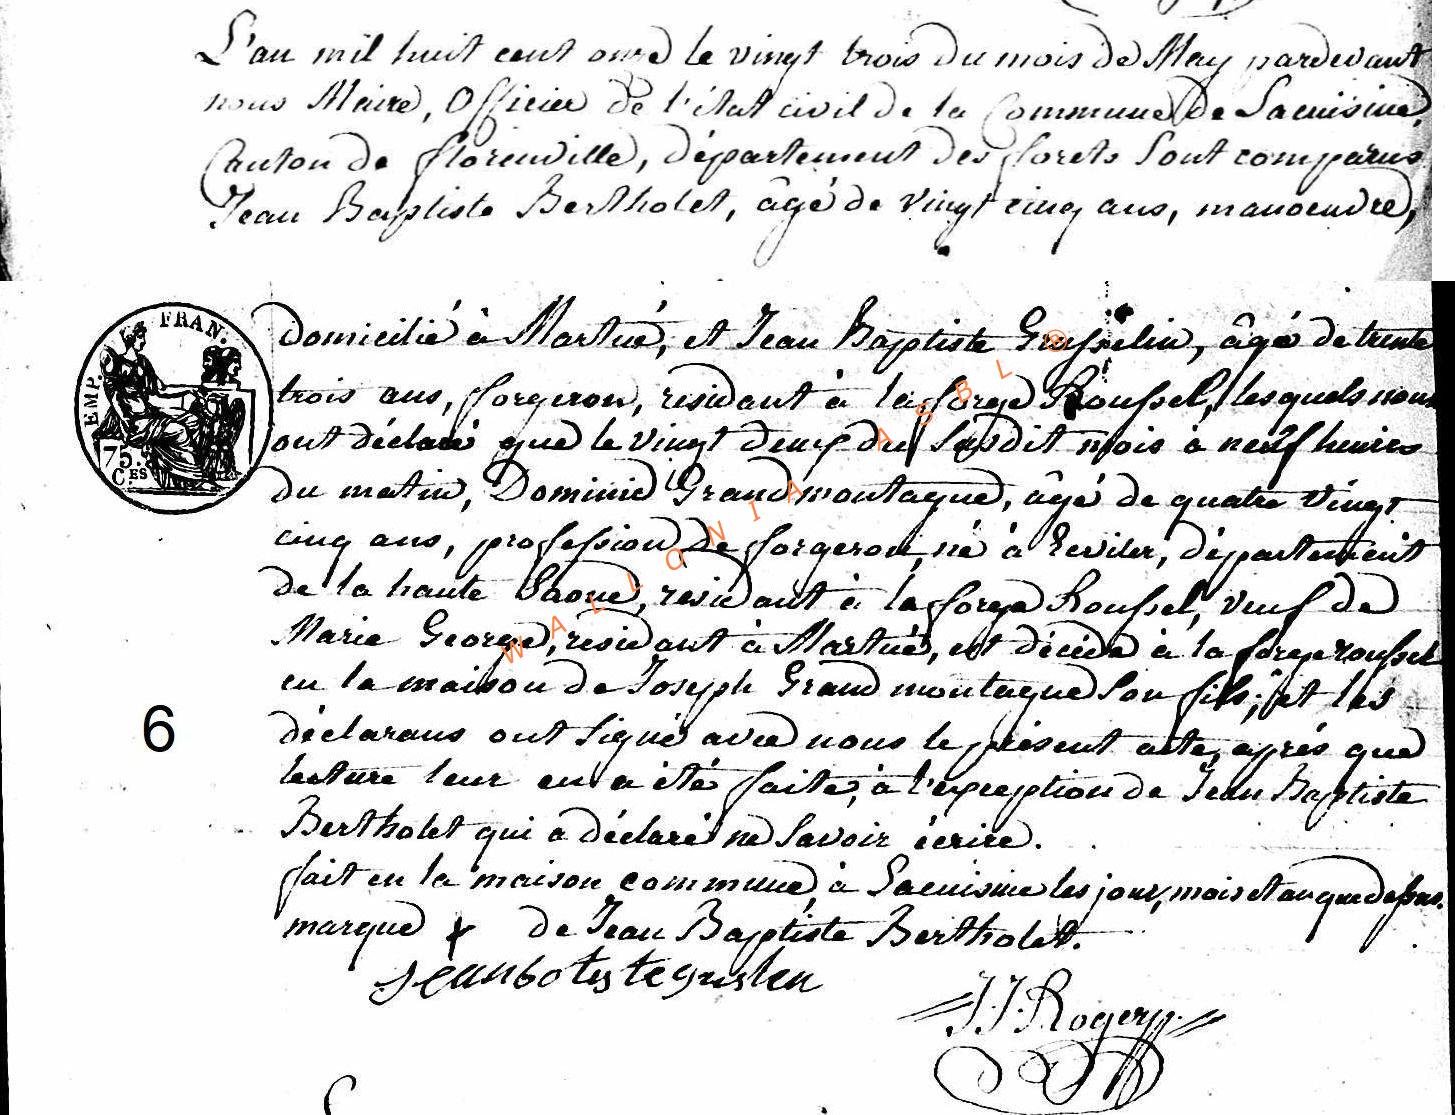 L'an mil huit cent onze le vingt trois du mois de May pardevant
nous Maire, Officier de l'état civil de la Commune de Lacuisine,
Canton de florenville, département des forets sont comparus
Jean Baptiste Bertholet, âgé de vingt cinq ans, manoeuvre,
EMP. FRAN.
75.
C.ES
domicilié à Martué, et Jean Baptiste Grusselin, âgé de trente
trois ans, forgeron, residant à la forge Roussel, lesquels nous
ont déclaré que le vingt deux du susdit mois à neuf heures
du matin, Dominic Grandmontagne, âgé de quatre vingt
cinq ans, profession De forgeron, né à département
de la haute Saone, residant à la forge Roussel, veuf de
Marie George, residant à Martué, est décédé à la forge roussel
en la maison de Joseph Grandmontagne son fils; et les
déclarans ont signé avec nous le présent acte, aprés que
lecture leur en a été faite, à l'exception de Jean Baptiste
Bertholet qui a déclaré ne savoir écrire.
fait en la maison commune, à Lacuisine les jour, mois et an que dessus.
marque x de Jean Baptiste Bertholet.
J.J. Rogery
WALLONIA ASBL ®
6